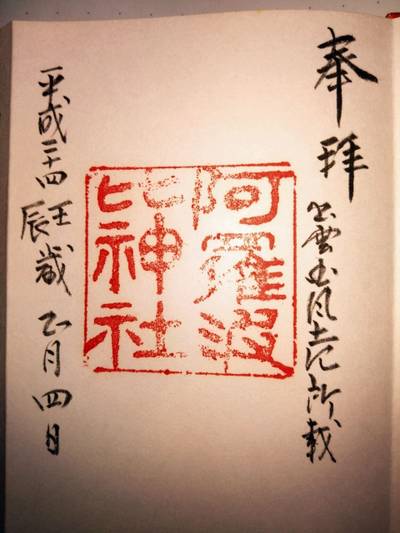 奉拝
出雲国風土記所載
阿羅波
比神社
平成二十四壬辰歳正月四日